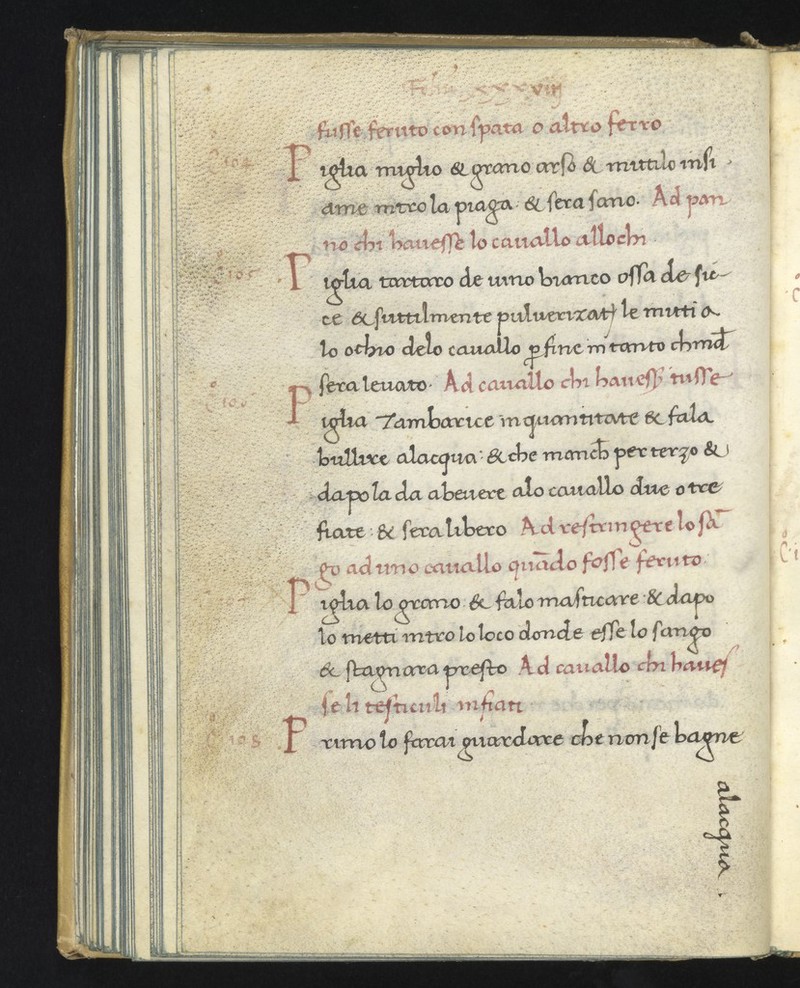 xxxviij
fusse feruto con spata o altro ferro
C.º 104
Piglia miglio & grano arso & mittilo insi
ame intro la piaga & sera sano. Ad pan
no chi hauesse lo cauallo allochi.
C.º 105
Piglia tartaro de uino bianco ossa de sic
ce & suttilmente puluerizati le mitti a
lo ochio delo cauallo ꝑ fine in tanto chind̄
sera leuato. Ad cauallo chi hauess̄ tusse
C.º 106
Piglia Zambarice in quantitate & fala
bullire alacqua: & che manch̄ per terzo &
dapo la da a beuere alo cauallo due o tre
fiate: & sera libero Ad restringere lo sā
go ad uno cauallo quādo fosse feruto
Piglia lo grano & falo masticare & dapo
lo metti intro lo loco donde esse lo sango
& stagnara presto Ad cauallo chi haues
se li testiculi infiati
C.º 108
Primo lo farai guardare che non se bagne
alacqua.